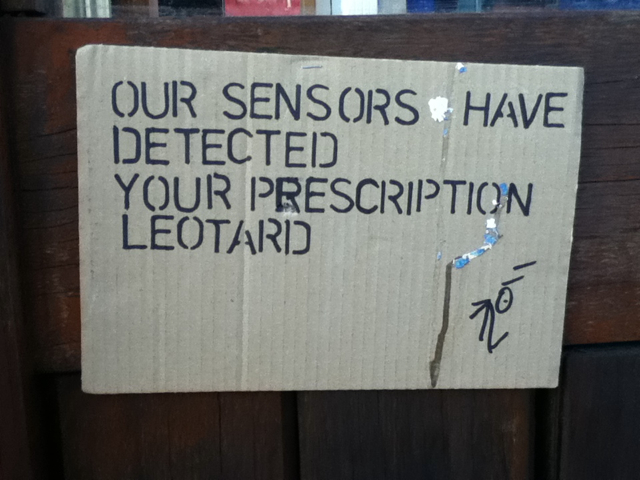 OUR SENSORS HAVE
DETECTED
YOUR PRESCRIPTION
LEOTARD